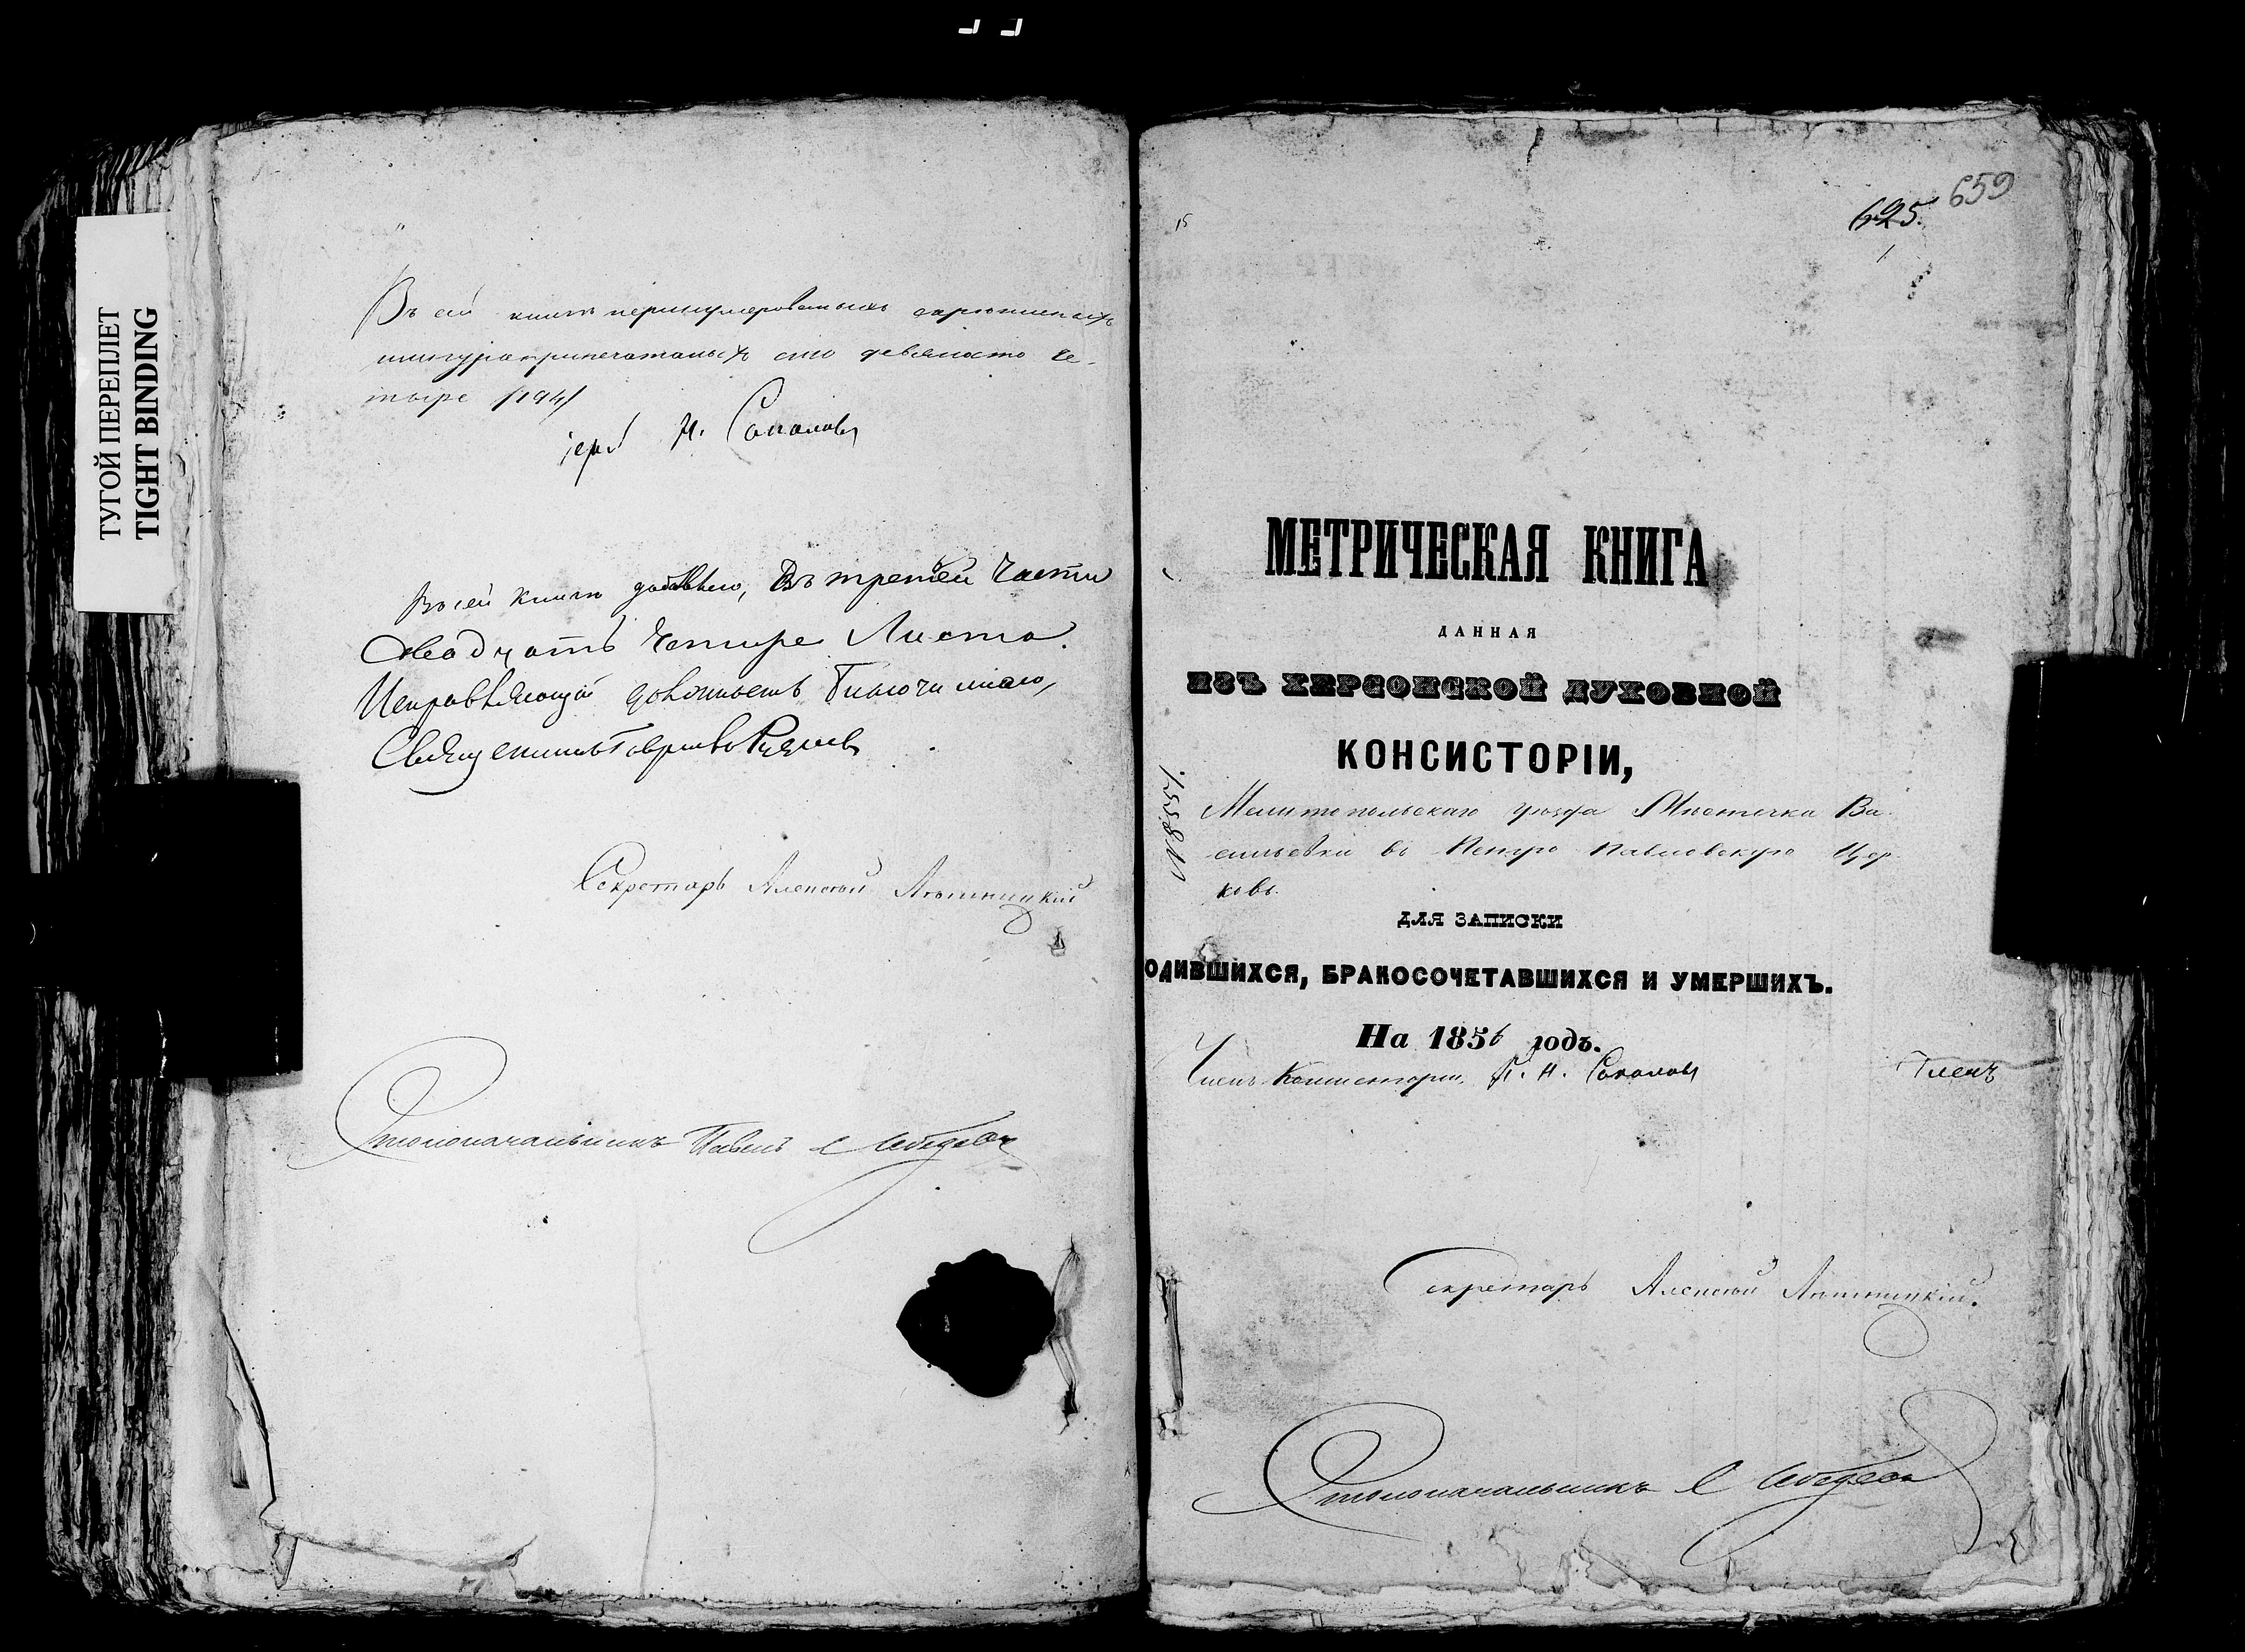 ТУГОЙ ПЕРЕПЛЕТ
TIGHT BINDING
Въ сей книгѣ перенумерованныхъ скрѣпленныхъ
шнуроприпечатаныхъ сто девяносто че-
тыре /194/
іерей Н. Соколовъ
Въ сей книгѣ добавлено, Въ третьей Части
двадцать четыре Листа.
Исправляющій должность Благочиннаго,
Священникъ
Секретарь Алексѣй
Столоначальникъ Павелъ Лебедевъ
15
625. 659
1
МЕТРИЧЕСКАЯ КНИГА
ДАННАЯ
ИЗЪ ХЕРСОНСКОЙ ДУХОВНОЙ
КОНСИСТОРІИ,
Мелитопольскаго уѣзда Мѣстечка Ва-
сильевки въ Петро Павловскую Цер-
ковь.
ДЛЯ ЗАПИСКИ
ОДИВШИХСЯ, БРАКОСОЧЕТАВШИХСЯ И УМЕРШИХЪ.
На 1856 годъ.
Членъ Консисторіи, Н. Соколовъ Членъ
Секретарь Алексѣй
Столоначальникъ Лебедевъ